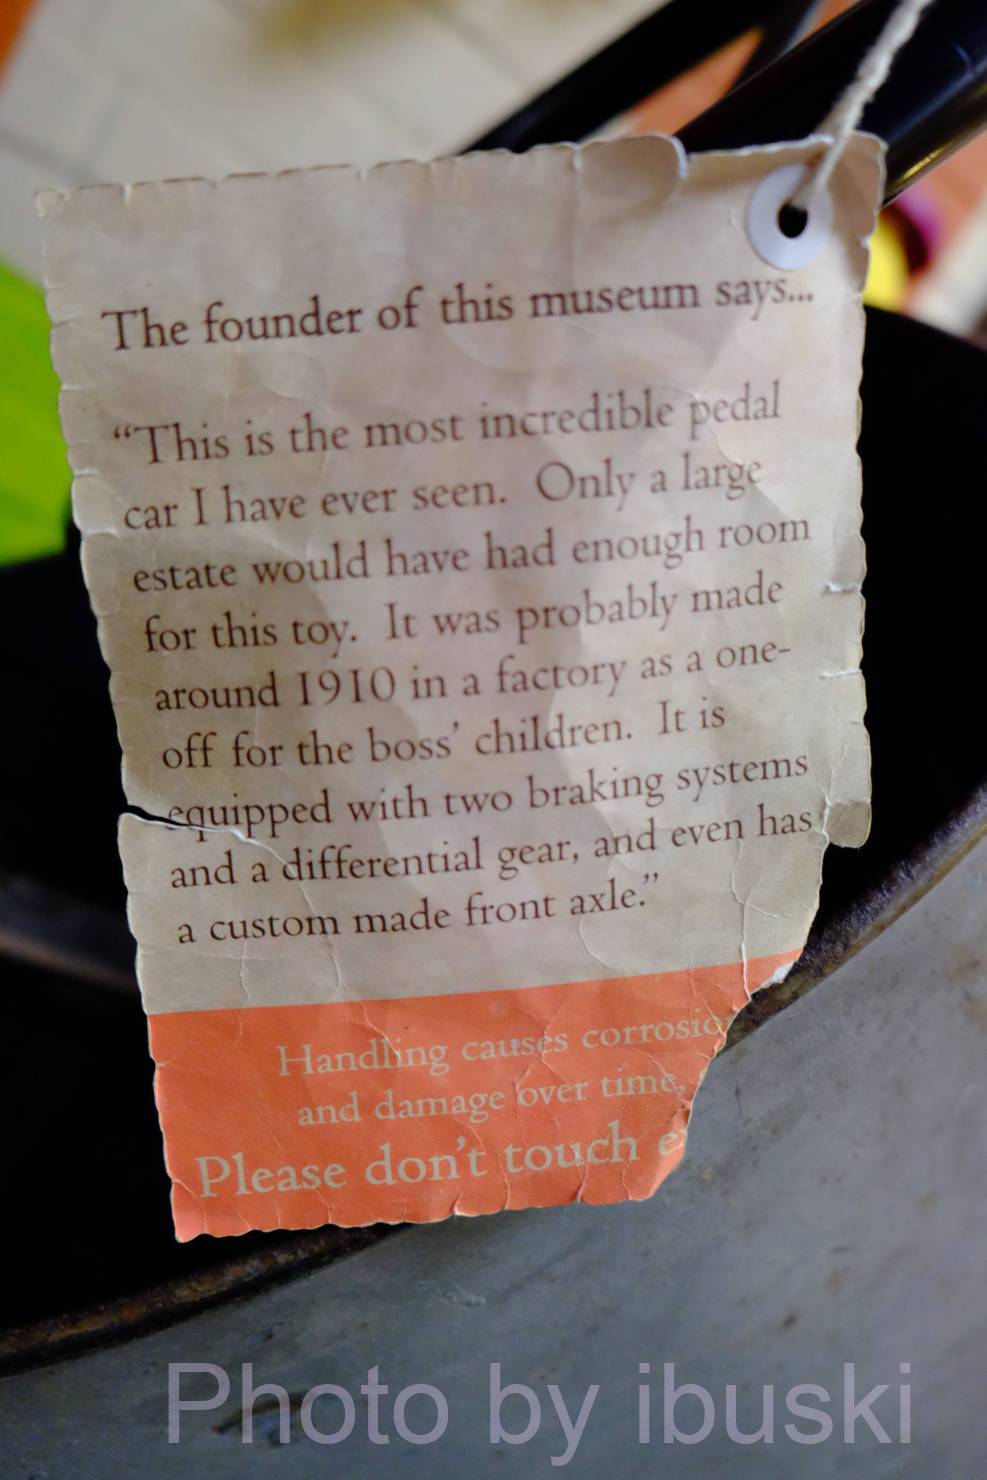 The founder of this museum says...
“This is the most incredible pedal
car I have ever seen. Only a large
estate would have had enough room
for this toy. It was probably made
around 1910 in a factory as a one-
off for the boss’ children. It is
equipped with two braking systems
and a differential gear, and even has
a custom made front axle.”
Handling causes corrosio
and damage over time.
Please don’t touch e
Photo by ibuski